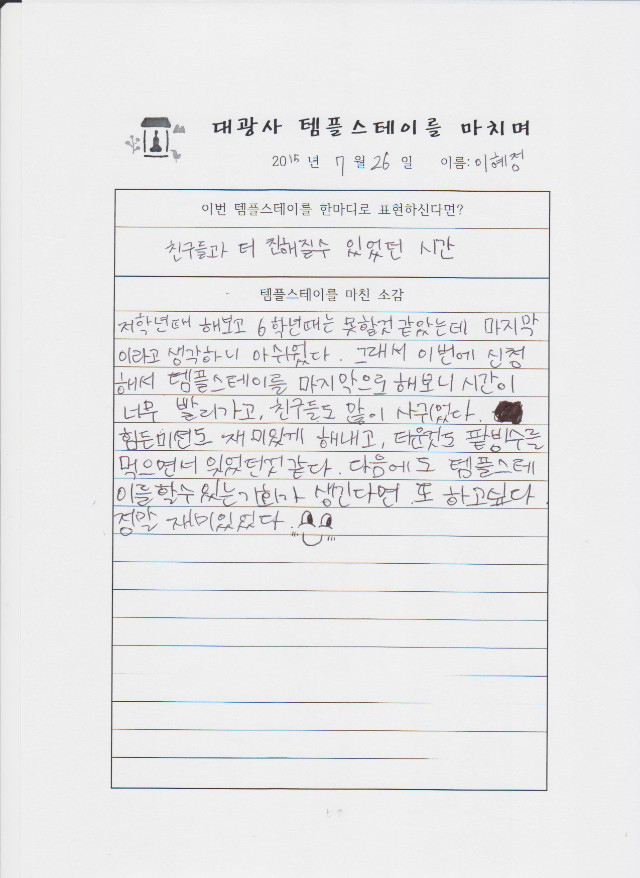 대광사 템플스테이를 마치며
2015 년 7 월 26 일 이름: 이혜정
이번 템플스테이를 한마디로 표현하신다면?
친구들과 더 친해질수 있었던 시간
템플스테이를 마친 소감
저학년때 해보고 6학년때는 못할것 같았는데 마지막
이라고 생각하니 아쉬웠다. 그래서 이번에 신청
해서 템플스테이를 마지막으로 해보니 시간이
너무 빨리가고, 친구들도 많이 사귀었다.
힘든미션도 재미있게 해내고, 더운것도 팥빙수를
먹으면서 있었던것 같다. 다음에도 템플스테
이를 할수있는 기회가 생긴다면 또 하고싶다
정말 재미있었다.